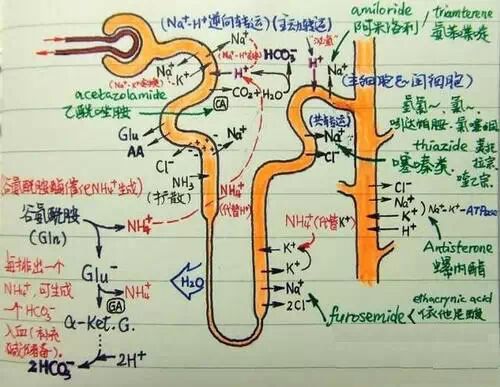 (Na⁺-H⁺逆向转运) (主动转运)
amiloride / triamterene
阿米洛利 氨苯蝶啶
Na⁺
K⁺
NH₄⁺
(Na⁺-H⁺交换)
H⁺
HCO₃⁻
CO₂+H₂O
CA
acetazolamide
乙酰唑胺
H⁺
Na⁺
(主细胞与闰细胞)
氢氯~. 氯~.
吲达帕胺.
thiazide
噻嗪类
(共转运)
Na⁺
Cl⁻
Glu
AA
Na⁺
Cl⁻
NH₃
(扩散)
NH₄⁺
(代替H⁺)
谷氨酰胺酶催化NH₄⁺生成)
谷氨酰胺
(Gln)
NH₄⁺
Glu⁻
NH₄⁺
GA
α-Ket.G.
2HCO₃⁻
2H⁺
每排出一个
NH₄⁺,可生成
一HCO₃⁻
入血(补充
碱储备).
H₂O
NH₄⁺(代替K⁺)
K⁺
K⁺
Na⁺
2Cl⁻
furosemide
ethacrynic acid
依他尼酸
Cl⁻
Na⁺
K⁺
H⁺
Na⁺-K⁺-ATPase
Antisterone
螺内酯